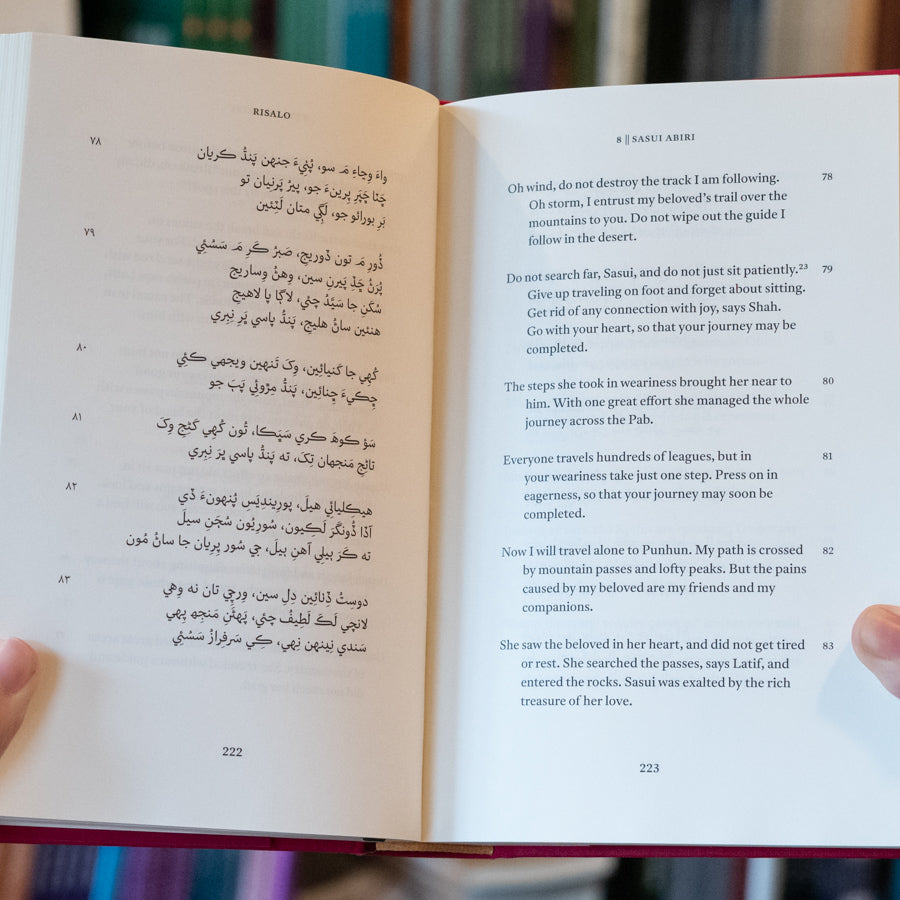 RISALO
٧٨
واءَ وِڃاءِ مَ سو، پُٺِيءَ جنهن پَنڌُ ڪريان
چَٽا چَپَر پِرينءَ جو، پيرُ پَرنِيان تو
بَرِ بورائو جو، لَڳِي متان لَٽِئين
٧٩
ڏُورِ مَ تون ڏوريجِ، صَبرُ ڪَرِ مَ سَسُئي
پُرَڻُ ڇَڏِ پَيرنِ سين، وِهڻُ وِساريج
سُکَن جا سَيَّدُ چئي، لاڳا پا لاهيج
هنئين ساڻُ هليجِ، پَنڌُ پاسي ڀَرِ نِبِري
٨٠
ڪُهي جا گنيائين، وِکَ تَنهين ويجهي ڪئِي
چِڪيءَ ڇِنائين، پَنڌُ مِڙوئِي پَٻَ جو
٨١
سَوَ ڪوهَ ڪري سَڀَڪا، تُون ڪُهِي کَڻِجِ وِکَ
تاڻِجِ مَنجهان تِکَ، ته پَنڌُ پاسي ڀَرَ نِبِري
٨٢
هيڪِليائِي هيلَ، پورِيندِيَسِ پُنهونءَ ڏي
آڏا ڏُونگَرَ لَڪِيون، سُورِيُون سُڄَنِ سيلَ
ته ڪَرَ ٻيلِي آهنِ ٻيلَ، جي سُور پِرِيان جا ساڻُ مُون
٨٣
دوسِتُ ڏِٺائِين دِلِ سين، وِرچِي تان نه وِهي
لانچي لَڪَ لَطِيفُ چئي، پَهڻَنِ مَنجِهہ پِهي
سَندي نِينهن نِهي، ڪِي سَرفِرازُ سَسُئي
222
8 || SASUI ABIRI
Oh wind, do not destroy the track I am following. 78
Oh storm, I entrust my beloved's trail over the
mountains to you. Do not wipe out the guide I
follow in the desert.
Do not search far, Sasui, and do not just sit patiently.²³ 79
Give up traveling on foot and forget about sitting.
Get rid of any connection with joy, says Shah.
Go with your heart, so that your journey may be
completed.
The steps she took in weariness brought her near to 80
him. With one great effort she managed the whole
journey across the Pab.
Everyone travels hundreds of leagues, but in 81
your weariness take just one step. Press on in
eagerness, so that your journey may soon be
completed.
Now I will travel alone to Punhun. My path is crossed 82
by mountain passes and lofty peaks. But the pains
caused by my beloved are my friends and my
companions.
She saw the beloved in her heart, and did not get tired 83
or rest. She searched the passes, says Latif, and
entered the rocks. Sasui was exalted by the rich
treasure of her love.
223